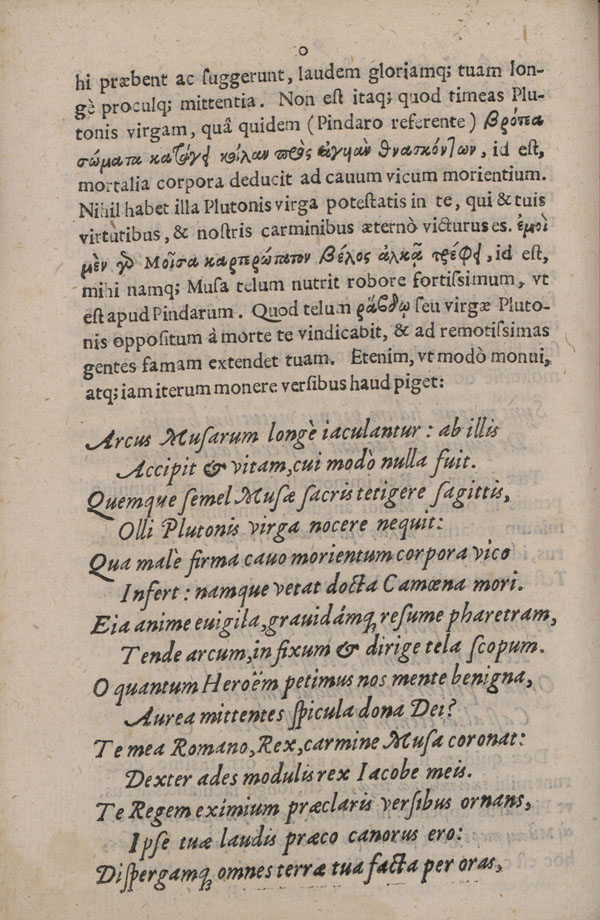 hi præbent ac ſuggerunt, laudem gloriamq; tuam lon-
gè proculq; mittentia. Non eſt itaq; quod timeas Plu-
tonis virgam, quâ quidem (Pindaro referente) βρότεα
σώματα κατάγει κοίλαν πρὸς ἀγυιὰν θνασκόντων, id eſt,
mortalia corpora deducit ad cauum vicum morientium.
Nihil habet illa Plutonis virga poteſtatis in te, qui & tuis
virtutibus, & noſtris carminibus æternò victurus es. ἐμοὶ
μὲν γὸ Μοῖσα καρτερώτατον βέλος ἀλκᾷ τρέφει, id eſt,
mihi namq; Muſa telum nutrit robore fortiſsimum, vt
eſt apud Pindarum. Quod telum ῥάβδῳ ſeu virgæ Pluto-
nis oppoſitum à morte te vindicabit, & ad remotiſsimas
gentes famam extendet tuam. Etenim, vt modò monui,
atq; iam iterum monere verſibus haud piget:
Arcus Muſarum longè iaculantur: ab illis
Accipit & vitam, cui modò nulla fuit.
Quemque ſemel Muſæ ſacris tetigere ſagittis,
Olli Plutonis virga nocere nequit:
Qua malè firma cauo morientum corpora vico
Infert: namque vetat docta Camœna mori.
Eia anime euigila, grauidámq; reſume pharetram,
Tende arcum, in fixum & dirige tela ſcopum.
O quantum Heroëm petimus nos mente benigna,
Aurea mittentes ſpicula dona Dei?
Te mea Romano, Rex, carmine Muſa coronat:
Dexter ades modulis rex Iacobe meis.
Te Regem eximium præclaris verſibus ornans,
Ipſe tuæ laudis præco canorus ero:
Diſpergamq; omnes terræ tua facta per oras,